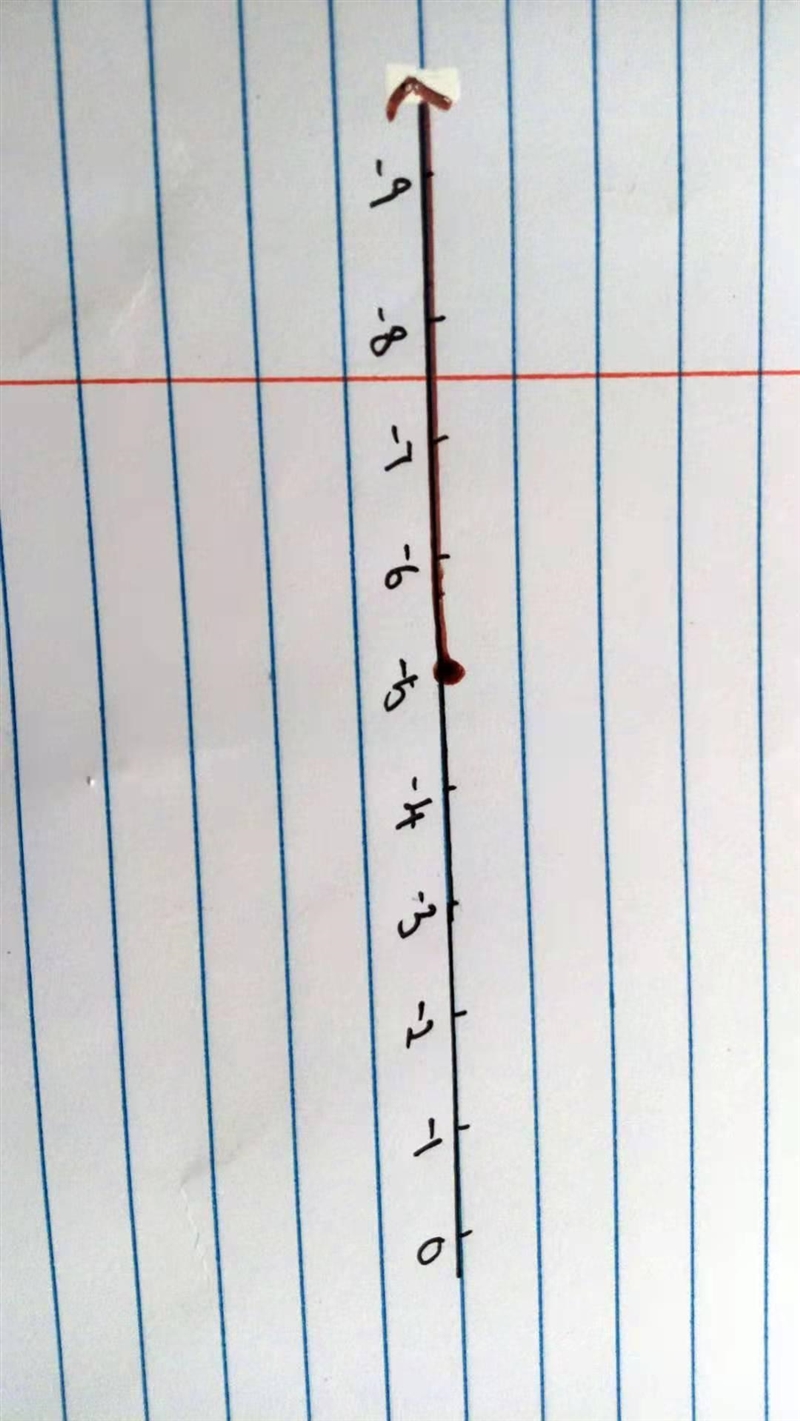 -9 -8 -7 -6 -5 -4 -3 -2 -1 0